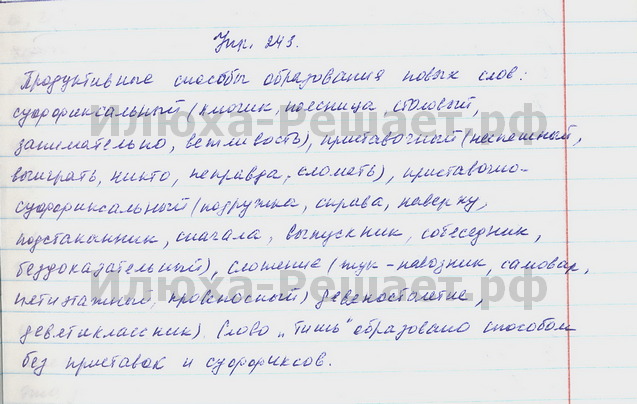 Упр. 243.
Продуктивные способы образования новых слов:
суффиксальный (ключик, поясница, столовый,
занимательно, вежливость), приставочный (неспешный,
выиграть, никто, неправда, сломать), приставочно-
суффиксальный (подружка, справа, наверху,
подстаканник, сначала, выпускник, собеседник,
бездоказательный), сложение (жук-навозник, самовар,
пятиэтажный, кровеносный) девяностолетие,
девятиклассник) Слово „тишь" образовано способом
без приставок и суффиксов.
Илюха-Решает.рф
Илюха-Решает.рф